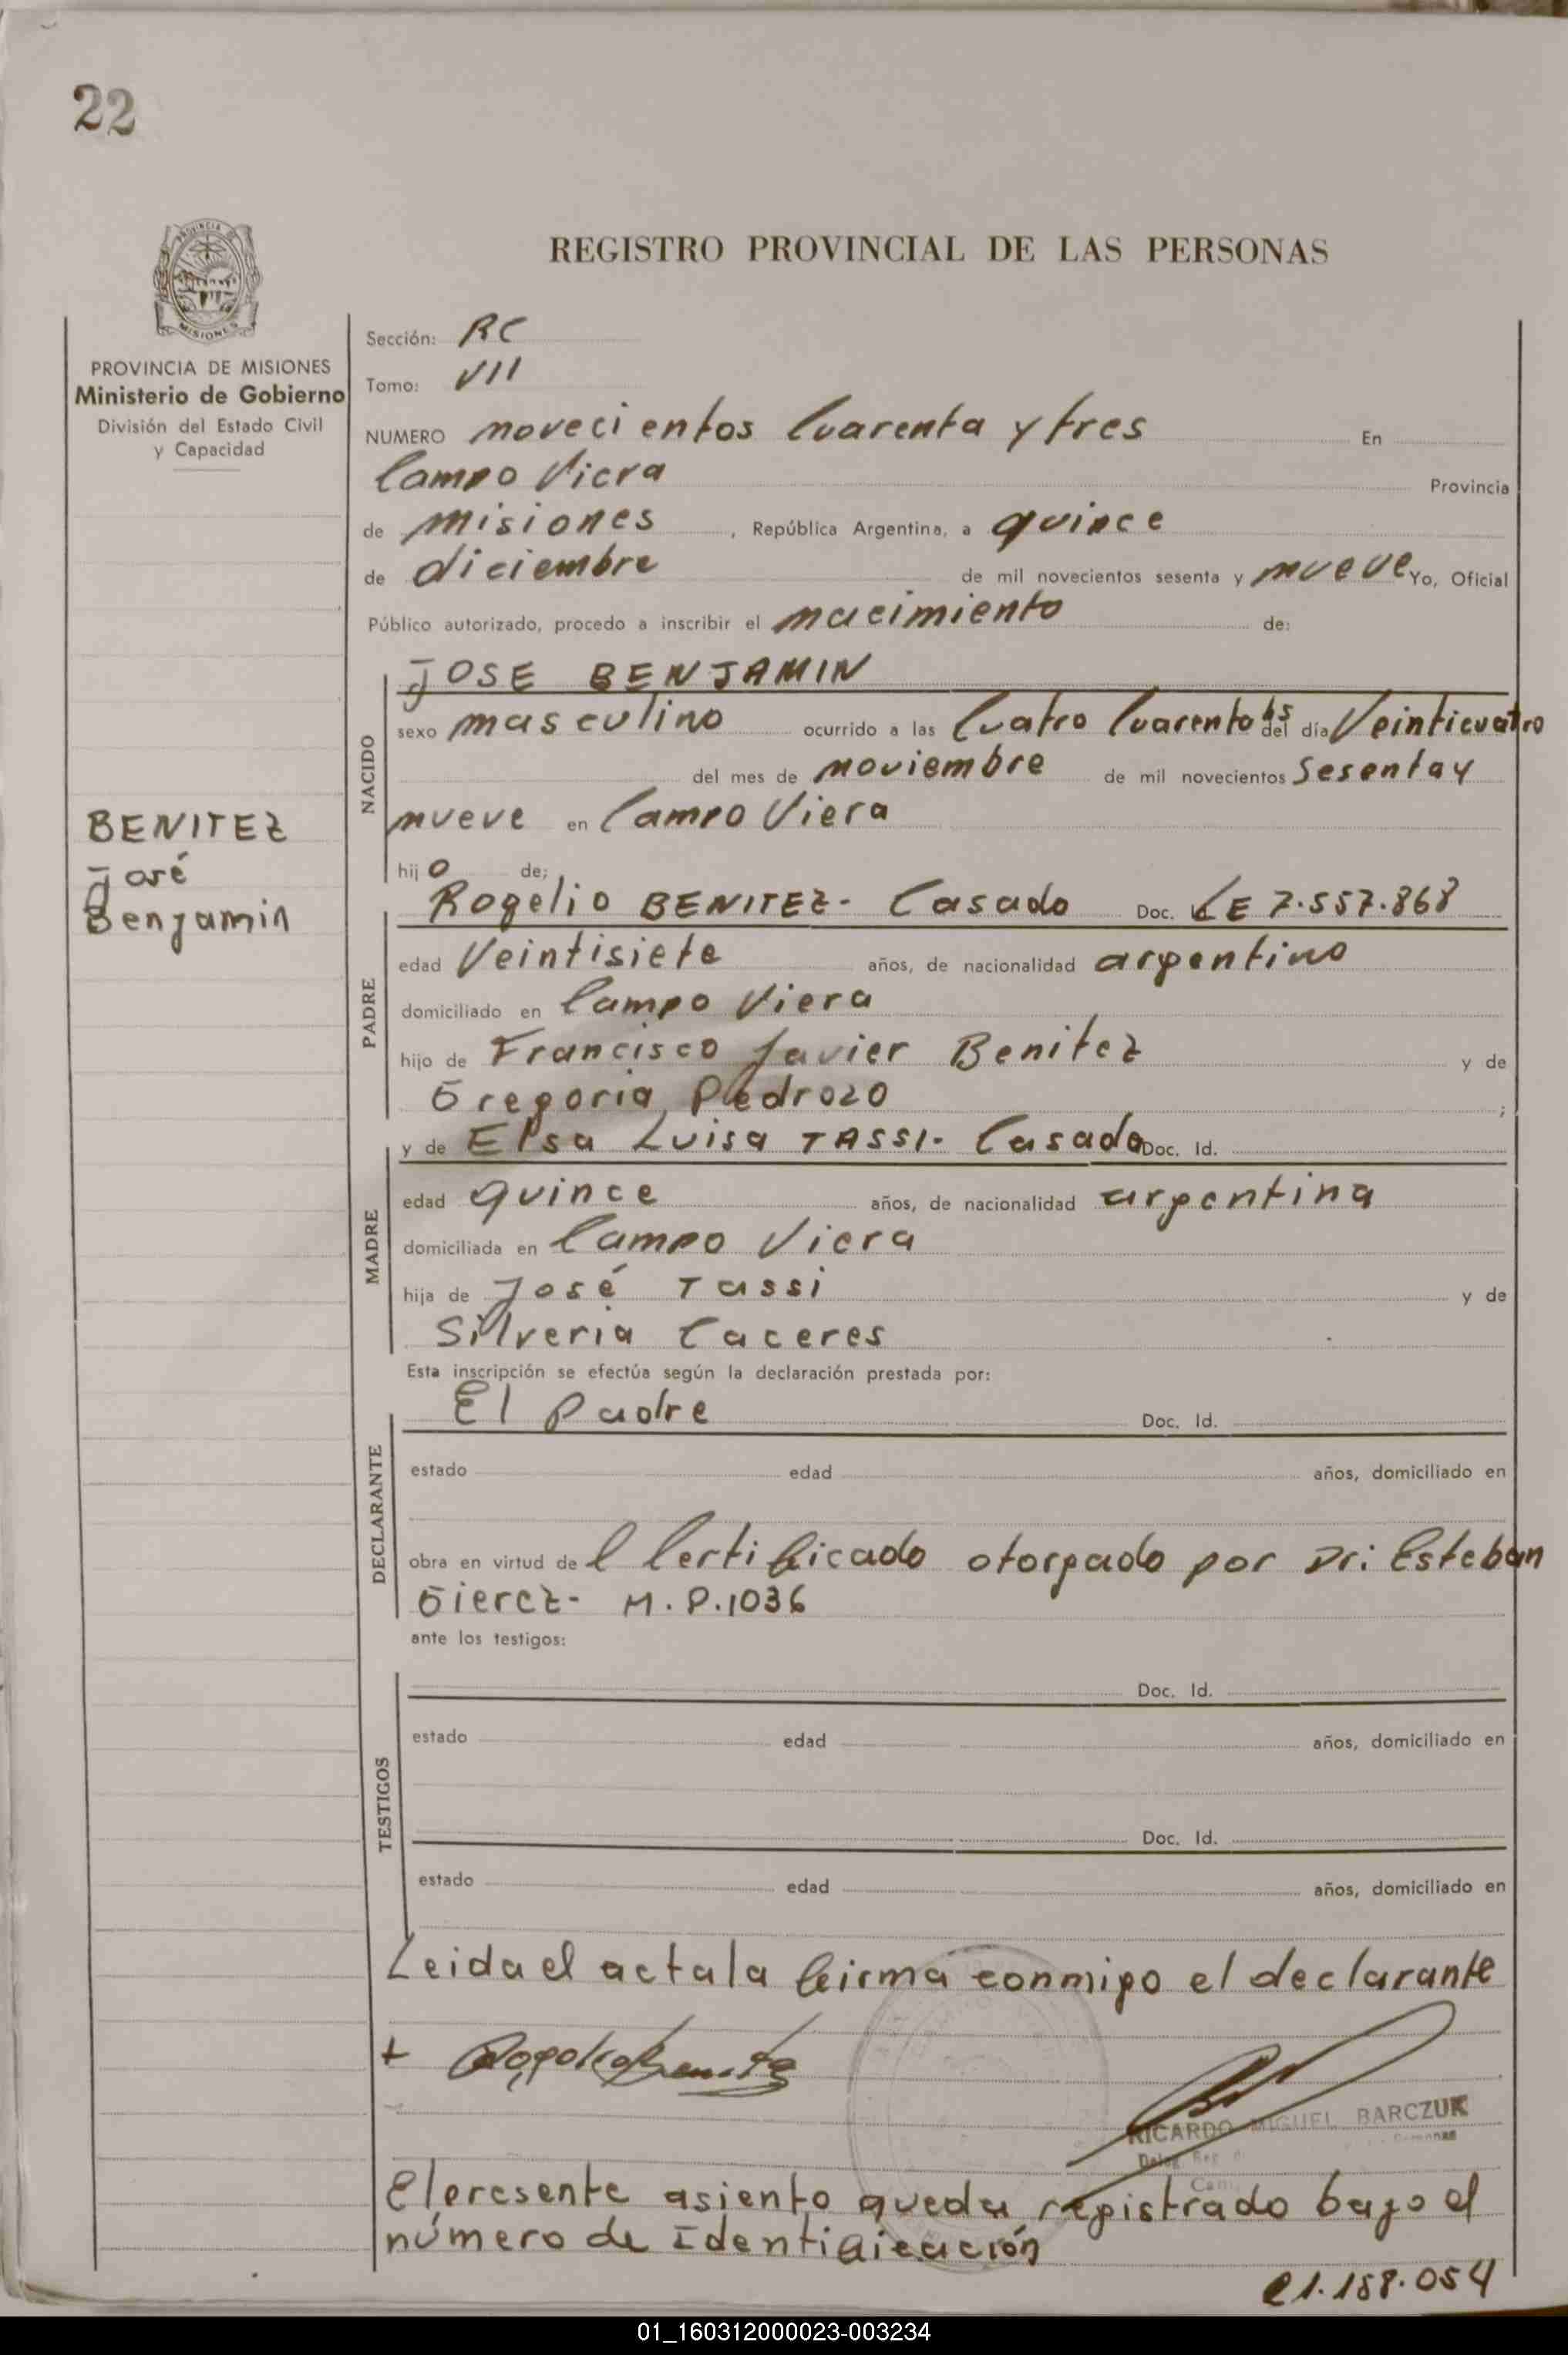 22
PROVINCIA
MISIONES
PROVINCIA DE MISIONES
Ministerio de Gobierno
División del Estado Civil
y Capacidad
BENITEZ
José
Benjamin
REGISTRO PROVINCIAL DE LAS PERSONAS
Sección: RC
Tomo: VII
NUMERO novecientos Cuarenta y tres En
Campo Viera Provincia
de misiones, República Argentina, a quince
de diciembre de mil novecientos sesenta y nueve Yo, Oficial
Público autorizado, procedo a inscribir el nacimiento de:
NACIDO
JOSE BENJAMIN
sexo masculino ocurrido a las Cuatro Cuarenta hs del día Veinticuatro
del mes de noviembre de mil novecientos Sesenta y
nueve en Campo Viera
hijo de:
PADRE
Rogelio BENITEZ- Casado Doc. LE 7.557.868
edad Veintisiete años, de nacionalidad argentino
domiciliado en Campo Viera
hijo de Francisco Javier Benitez y de
Gregoria Pedrozo;
MADRE
y de Elsa Luisa TASSI- Casada Doc. Id.
edad quince años, de nacionalidad argentina
domiciliada en Campo Viera
hija de José Tassi y de
Silveria Caceres
Esta inscripción se efectúa según la declaración prestada por:
DECLARANTE
El Padre Doc. Id.
estado edad años, domiciliado en
obra en virtud de l Certificado otorgado por Dr: Esteban
Gierez- M.P.1036
ante los testigos:
TESTIGOS
Doc. Id.
estado edad años, domiciliado en
Doc. Id.
estado edad años, domiciliado en
Leida el acta la firma conmigo el declarante
+ Rogelio Benitez
RICARDO MIGUEL BARCZUK
El presente asiento queda registrado bajo el
número de Identificación
21.158.054
01_160312000023-003234